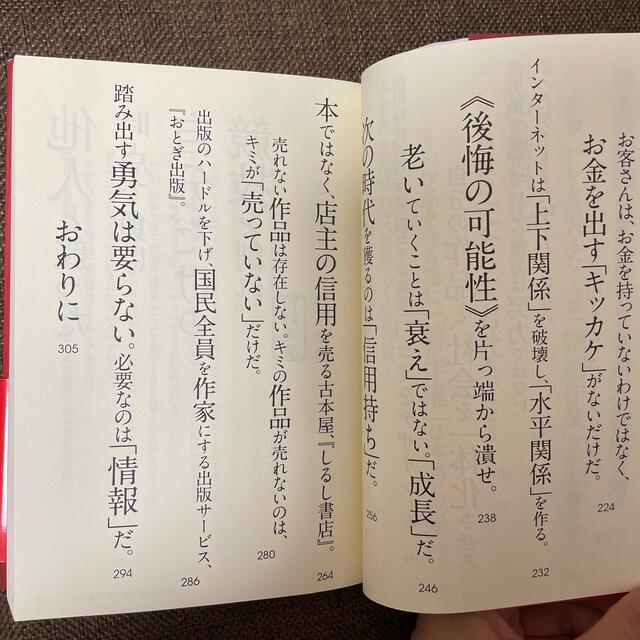 お客さんは、お金を持っていないわけではなく、
お金を出す「キッカケ」がないだけだ。
224
インターネットは「上下関係」を破壊し、「水平関係」を作る。
232
《後悔の可能性》を片っ端から潰せ。
238
老いていくことは「衰え」ではない。「成長」だ。
246
次の時代を獲るのは「信用持ち」だ。
256
本ではなく、店主の信用を売る古本屋、『しるし書店』。
264
売れない作品は存在しない。キミの作品が売れないのは、
キミが「売っていない」だけだ。
280
出版のハードルを下げ、国民全員を作家にする出版サービス、
『おとぎ出版』。
286
踏み出す勇気は要らない。必要なのは「情報」だ。
294
おわりに
305